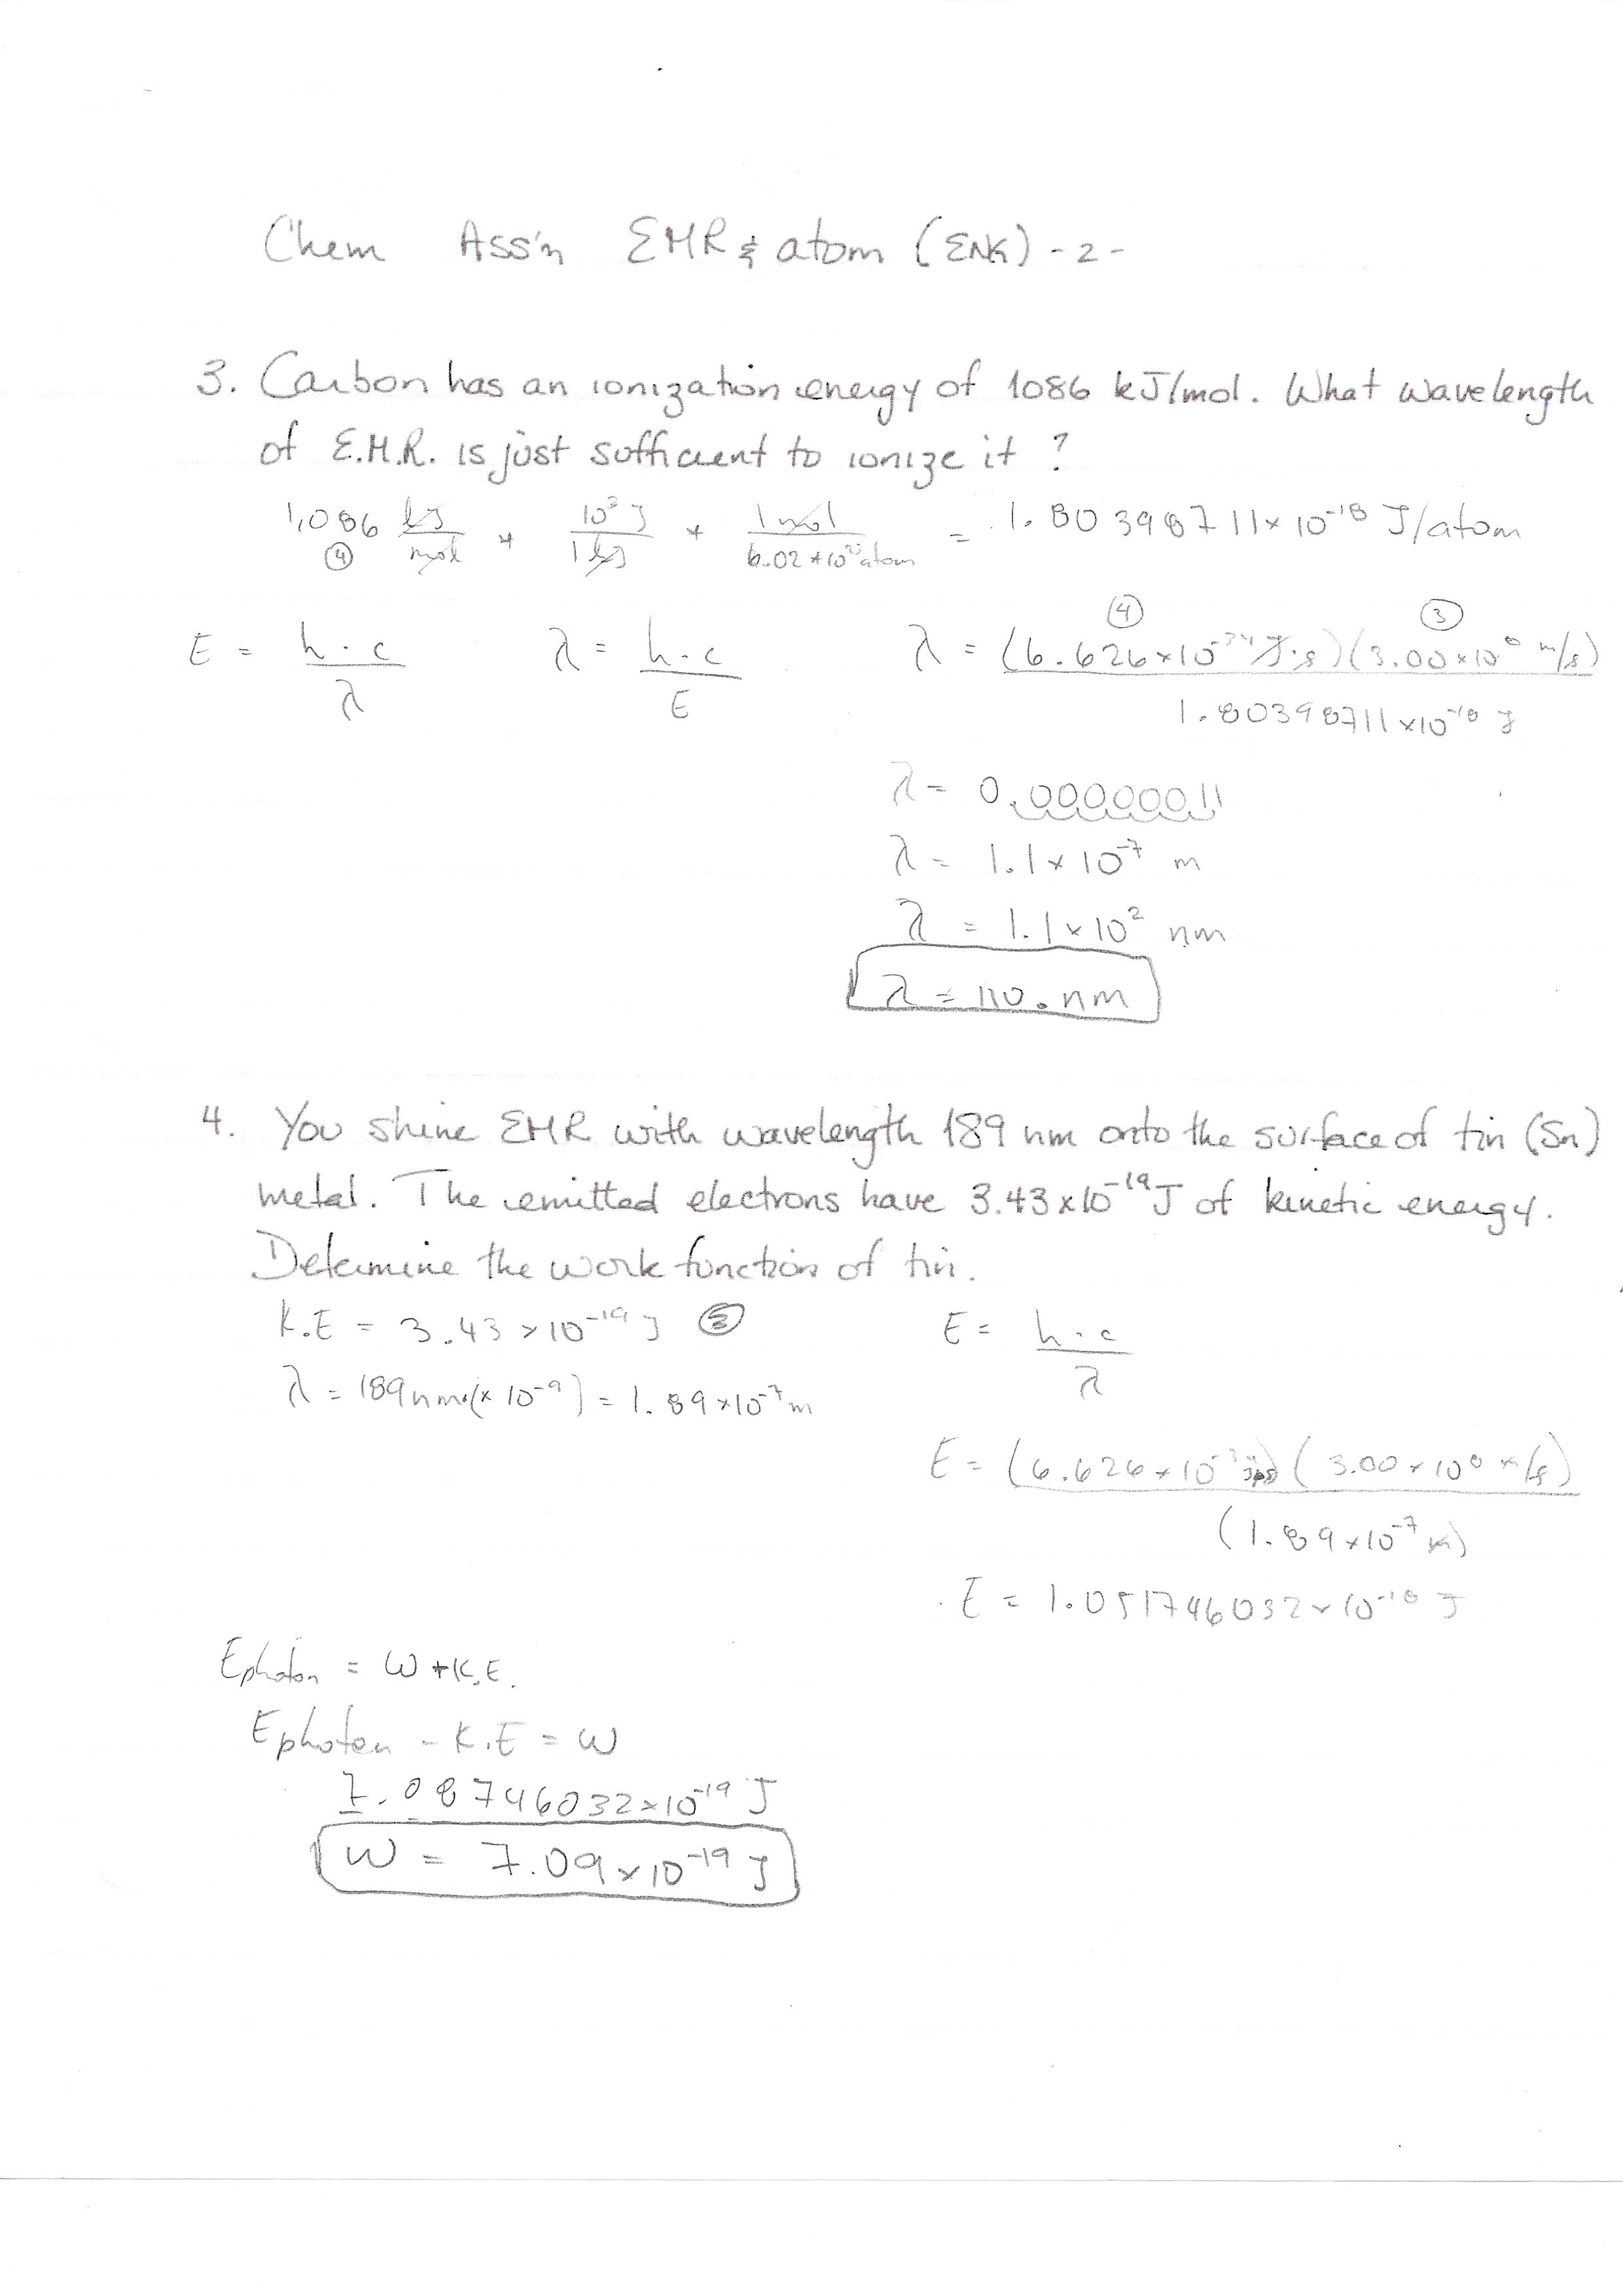 Chem Ass'n EMR & atom (ENK) - 2 -
3. Carbon has an ionization energy of 1086 kJ/mol. What wavelength
of E.M.R. is just sufficient to ionize it?
1,086 kJ/mol * 10³ J/1 kJ * 1 mol/6.02*10²³ atom = 1.80398711×10⁻¹⁸ J/atom
④
④ ③
E = h·c/λ λ = h·c/E λ = (6.626×10⁻³⁴ J·s)(3.00×10⁸ m/s)
1.80398711×10⁻¹⁸ J
λ = 0.00000011
λ = 1.1×10⁻⁷ m
λ = 1.1×10² nm
λ = 110. nm
4. You shine EMR with wavelength 189 nm onto the surface of tin (Sn)
metal. The emitted electrons have 3.43×10⁻¹⁹ J of kinetic energy.
Determine the work function of tin.
K.E = 3.43×10⁻¹⁹ J ③ E = h·c/λ
λ = 189 nm (×10⁻⁹) = 1.89×10⁻⁷ m
E = (6.626×10⁻³⁴ J·s)(3.00×10⁸ m/s)
(1.89×10⁻⁷ m)
E = 1.051746032×10⁻¹⁸ J
Ephoton = W + K.E.
Ephoton - K.E = W
7.08746032×10⁻¹⁹ J
W = 7.09×10⁻¹⁹ J